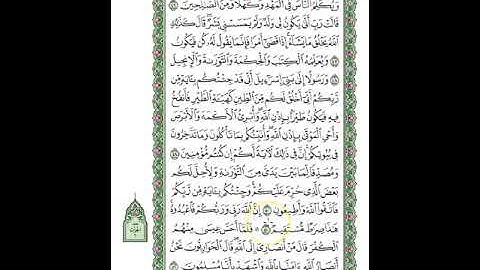 وَيُكَلِّمُ النَّاسَ فِي الْمَهْدِ وَكَهْلًا وَمِنَ الصَّالِحِينَ ٤٦
قَالَتْ رَبِّ أَنَّىٰ يَكُونُ لِي وَلَدٌ وَلَمْ يَمْسَسْنِي بَشَرٌ ۖ قَالَ كَذَٰلِكِ
اللَّهُ يَخْلُقُ مَا يَشَاءُ ۚ إِذَا قَضَىٰ أَمْرًا فَإِنَّمَا يَقُولُ لَهُ كُن فَيَكُونُ
٤٧ وَيُعَلِّمُهُ الْكِتَابَ وَالْحِكْمَةَ وَالتَّوْرَاةَ وَالْإِنجِيلَ
٤٨ وَرَسُولًا إِلَىٰ بَنِي إِسْرَائِيلَ أَنِّي قَدْ جِئْتُكُم بِآيَةٍ مِّن
رَّبِّكُمْ ۖ أَنِّي أَخْلُقُ لَكُم مِّنَ الطِّينِ كَهَيْئَةِ الطَّيْرِ فَأَنفُخُ
فِيهِ فَيَكُونُ طَيْرًا بِإِذْنِ اللَّهِ ۖ وَأُبْرِئُ الْأَكْمَهَ وَالْأَبْرَصَ
وَأُحْيِي الْمَوْتَىٰ بِإِذْنِ اللَّهِ ۖ وَأُنَبِّئُكُم بِمَا تَأْكُلُونَ وَمَا تَدَّخِرُونَ
فِي بُيُوتِكُمْ ۚ إِنَّ فِي ذَٰلِكَ لَآيَةً لَّكُمْ إِن كُنتُم مُّؤْمِنِينَ
٤٩ وَمُصَدِّقًا لِّمَا بَيْنَ يَدَيَّ مِنَ التَّوْرَاةِ وَلِأُحِلَّ لَكُم
بَعْضَ الَّذِي حُرِّمَ عَلَيْكُمْ ۚ وَجِئْتُكُم بِآيَةٍ مِّن رَّبِّكُمْ
فَاتَّقُوا اللَّهَ وَأَطِيعُونِ ٥٠ إِنَّ اللَّهَ رَبِّي وَرَبُّكُمْ فَاعْبُدُوهُ ۗ
هَٰذَا صِرَاطٌ مُّسْتَقِيمٌ ٥١ ۞ فَلَمَّا أَحَسَّ عِيسَىٰ مِنْهُمُ
الْكُفْرَ قَالَ مَنْ أَنصَارِي إِلَى اللَّهِ ۖ قَالَ الْحَوَارِيُّونَ نَحْنُ
أَنصَارُ اللَّهِ آمَنَّا بِاللَّهِ وَاشْهَدْ بِأَنَّا مُسْلِمُونَ ٥٢